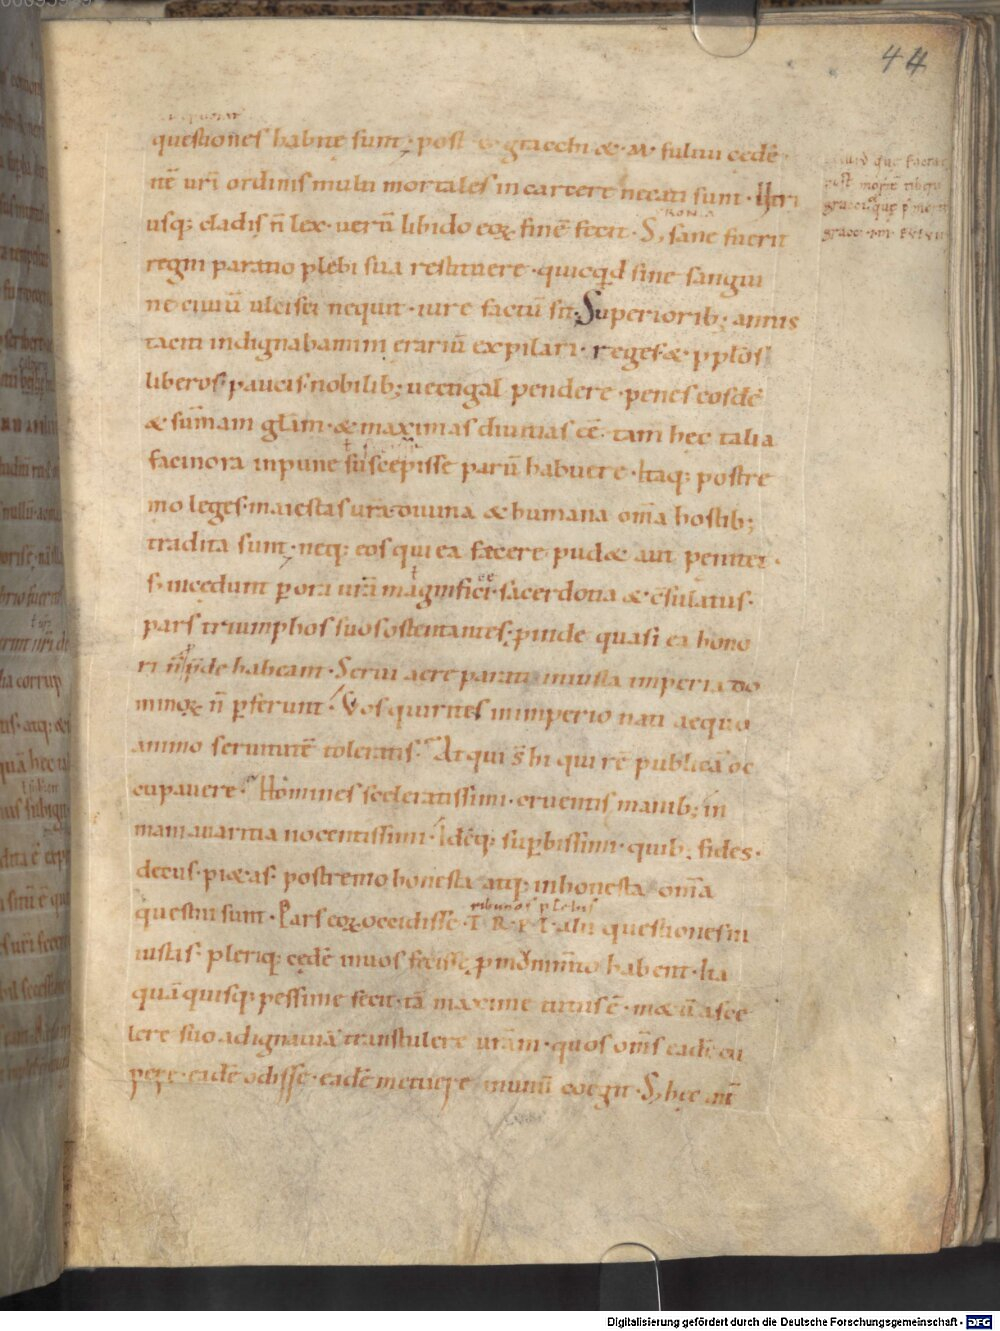 44
questiones habitę sunt. post & gracchi & M fuluii cędē
tē uri ordinis multi mortales in carcere necati sunt. Utri
usq; cladis n̄ lex. uerū libido eoꝝ finē fecit. S; sane fuerit
IRONIA
regni paratio plebi sua restituere. quicqd sine sangui
ne ciuiū ulcisci nequit. iure factū sit. Superiorib; annis
taciti indignabamini erariū expilari. reges & pplōs
liberos paucis nobilib; uectigal pendere. penes eosdē
& sum̄am glām. & maximas diuitias eē. tam̄ hęc talia
facinora inpune suscepisse parū habuere. Itaq; postre
mo leges. maiestas urā diuina & humana omīa hostib;
tradita sunt. neq; eos qui ea fecere pud& aut penitet.
s; incedunt p ora urā magnifici. sacerdotia & c̄sulatus.
pars triumphos suos ostentantes. pinde quasi ea hono
ri n̄ pde habeant. Serui aere parati iniusta imperia do
minoꝝ n̄ pferunt. Vos quirites in imperio nati aequo
animo seruitutē toleratis. At qui s̄ hi qui rē publicā oc
cupauere. Homines sceleratissimi. cruentis manib; in
mani auaritia nocentissimi. Idēq; supbissimi. quib; fides.
decus. pi&as. postremo honesta atq; inhonesta omīa
ribunos plebis
questui sunt. Pars eoꝝ occidisse. T R. P L. alii questiones in
iustas. pleriq; cędē in uos fecisse p munim̄to habent. Ita
quā quisq; pessime fecit. tā maxime tutus ē. m&ū a sce
lere suo ad ignauiā transtulere urām. quos om̄s eadē cu
pere. eadē odisse. eadē metuere in unū coegit. S; hęc int̄
Digitalisierung gefördert durch die Deutsche Forschungsgemeinschaft - DFG